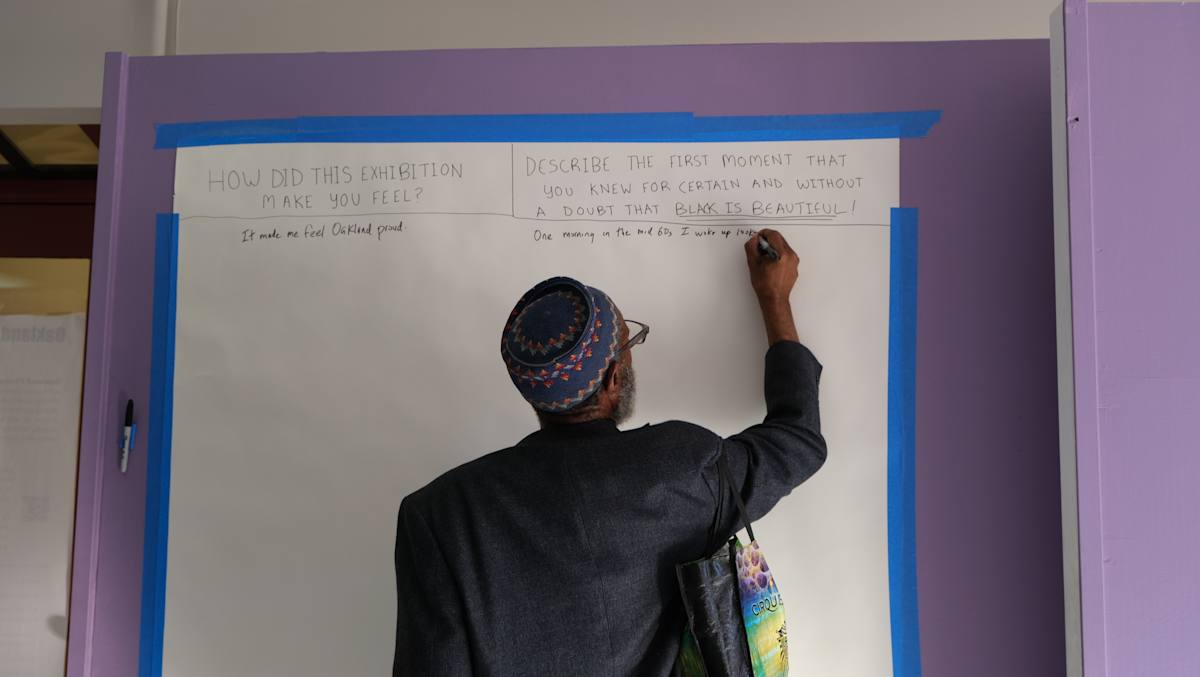 HOW DID THIS EXHIBITION
MAKE YOU FEEL?
It made me feel Oakland proud.
DESCRIBE THE FIRST MOMENT THAT
YOU KNEW FOR CERTAIN AND WITHOUT
A DOUBT THAT BLACK IS BEAUTIFUL!
One morning in the mid 60s I woke up
CIRQUE
Oakland